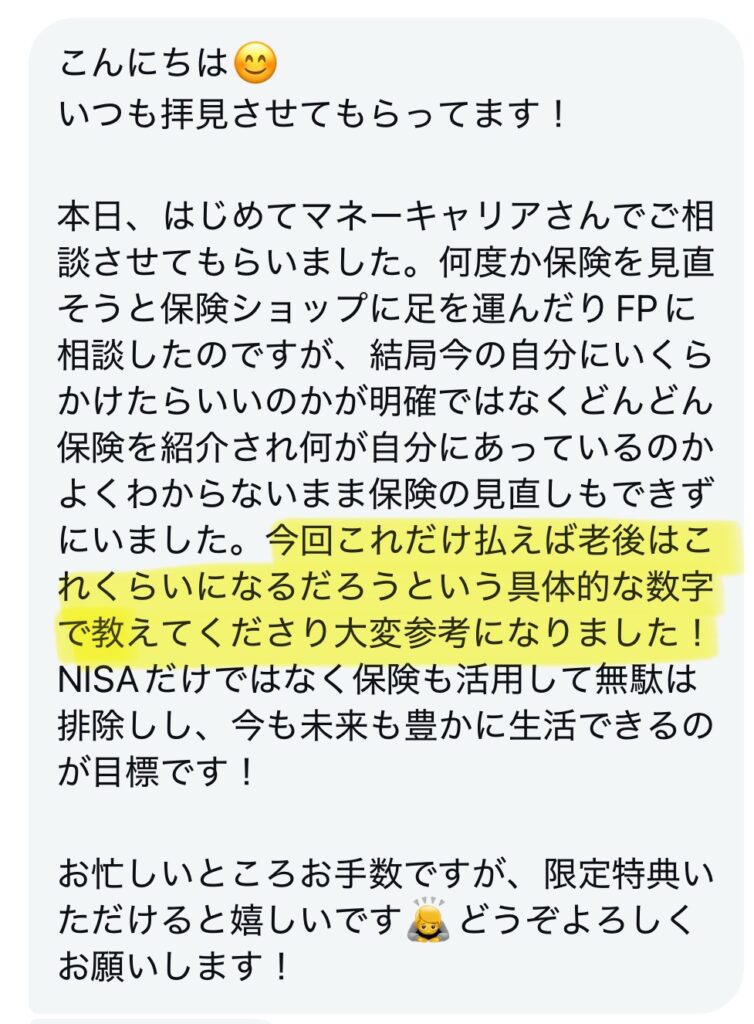 こんにちは😊
いつも拝見させてもらってます！
本日、はじめてマネーキャリアさんでご相
談させてもらいました。何度か保険を見直
そうと保険ショップに足を運んだりFPに
相談したのですが、結局今の自分にいくら
かけたらいいのかが明確ではなくどんどん
保険を紹介され何が自分にあっているのか
よくわからないまま保険の見直しもできず
にいました。今回これだけ払えば老後はこ
れくらいになるだろうという具体的な数字
で教えてくださり大変参考になりました！
NISAだけではなく保険も活用して無駄は
排除しし、今も未来も豊かに生活できるの
が目標です！
お忙しいところお手数ですが、限定特典い
ただけると嬉しいです🙇どうぞよろしく
お願いします！